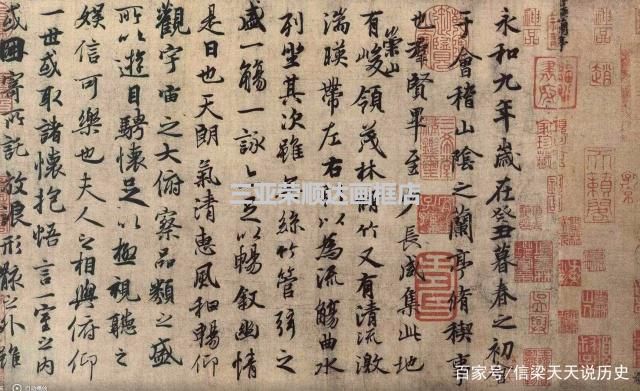 永和九年歲在癸丑暮春之初
于會稽山陰之蘭亭脩稧事
也羣賢畢至少長咸集此地
有崇山峻領茂林脩竹又有清流激
湍暎帶左右引以為流觴曲水
列坐其次雖無絲竹管弦之
盛一觴一詠亦足以暢敘幽情
是日也天朗氣清惠風和暢仰
觀宇宙之大俯察品類之盛
所以遊目騁懷足以極視聽之
娛信可樂也夫人之相與俯仰
一世或取諸懷抱悟言一室之內
或因寄所託放浪形骸之外雖
三亚荣顺达画框店
百家号/信梁天天说历史